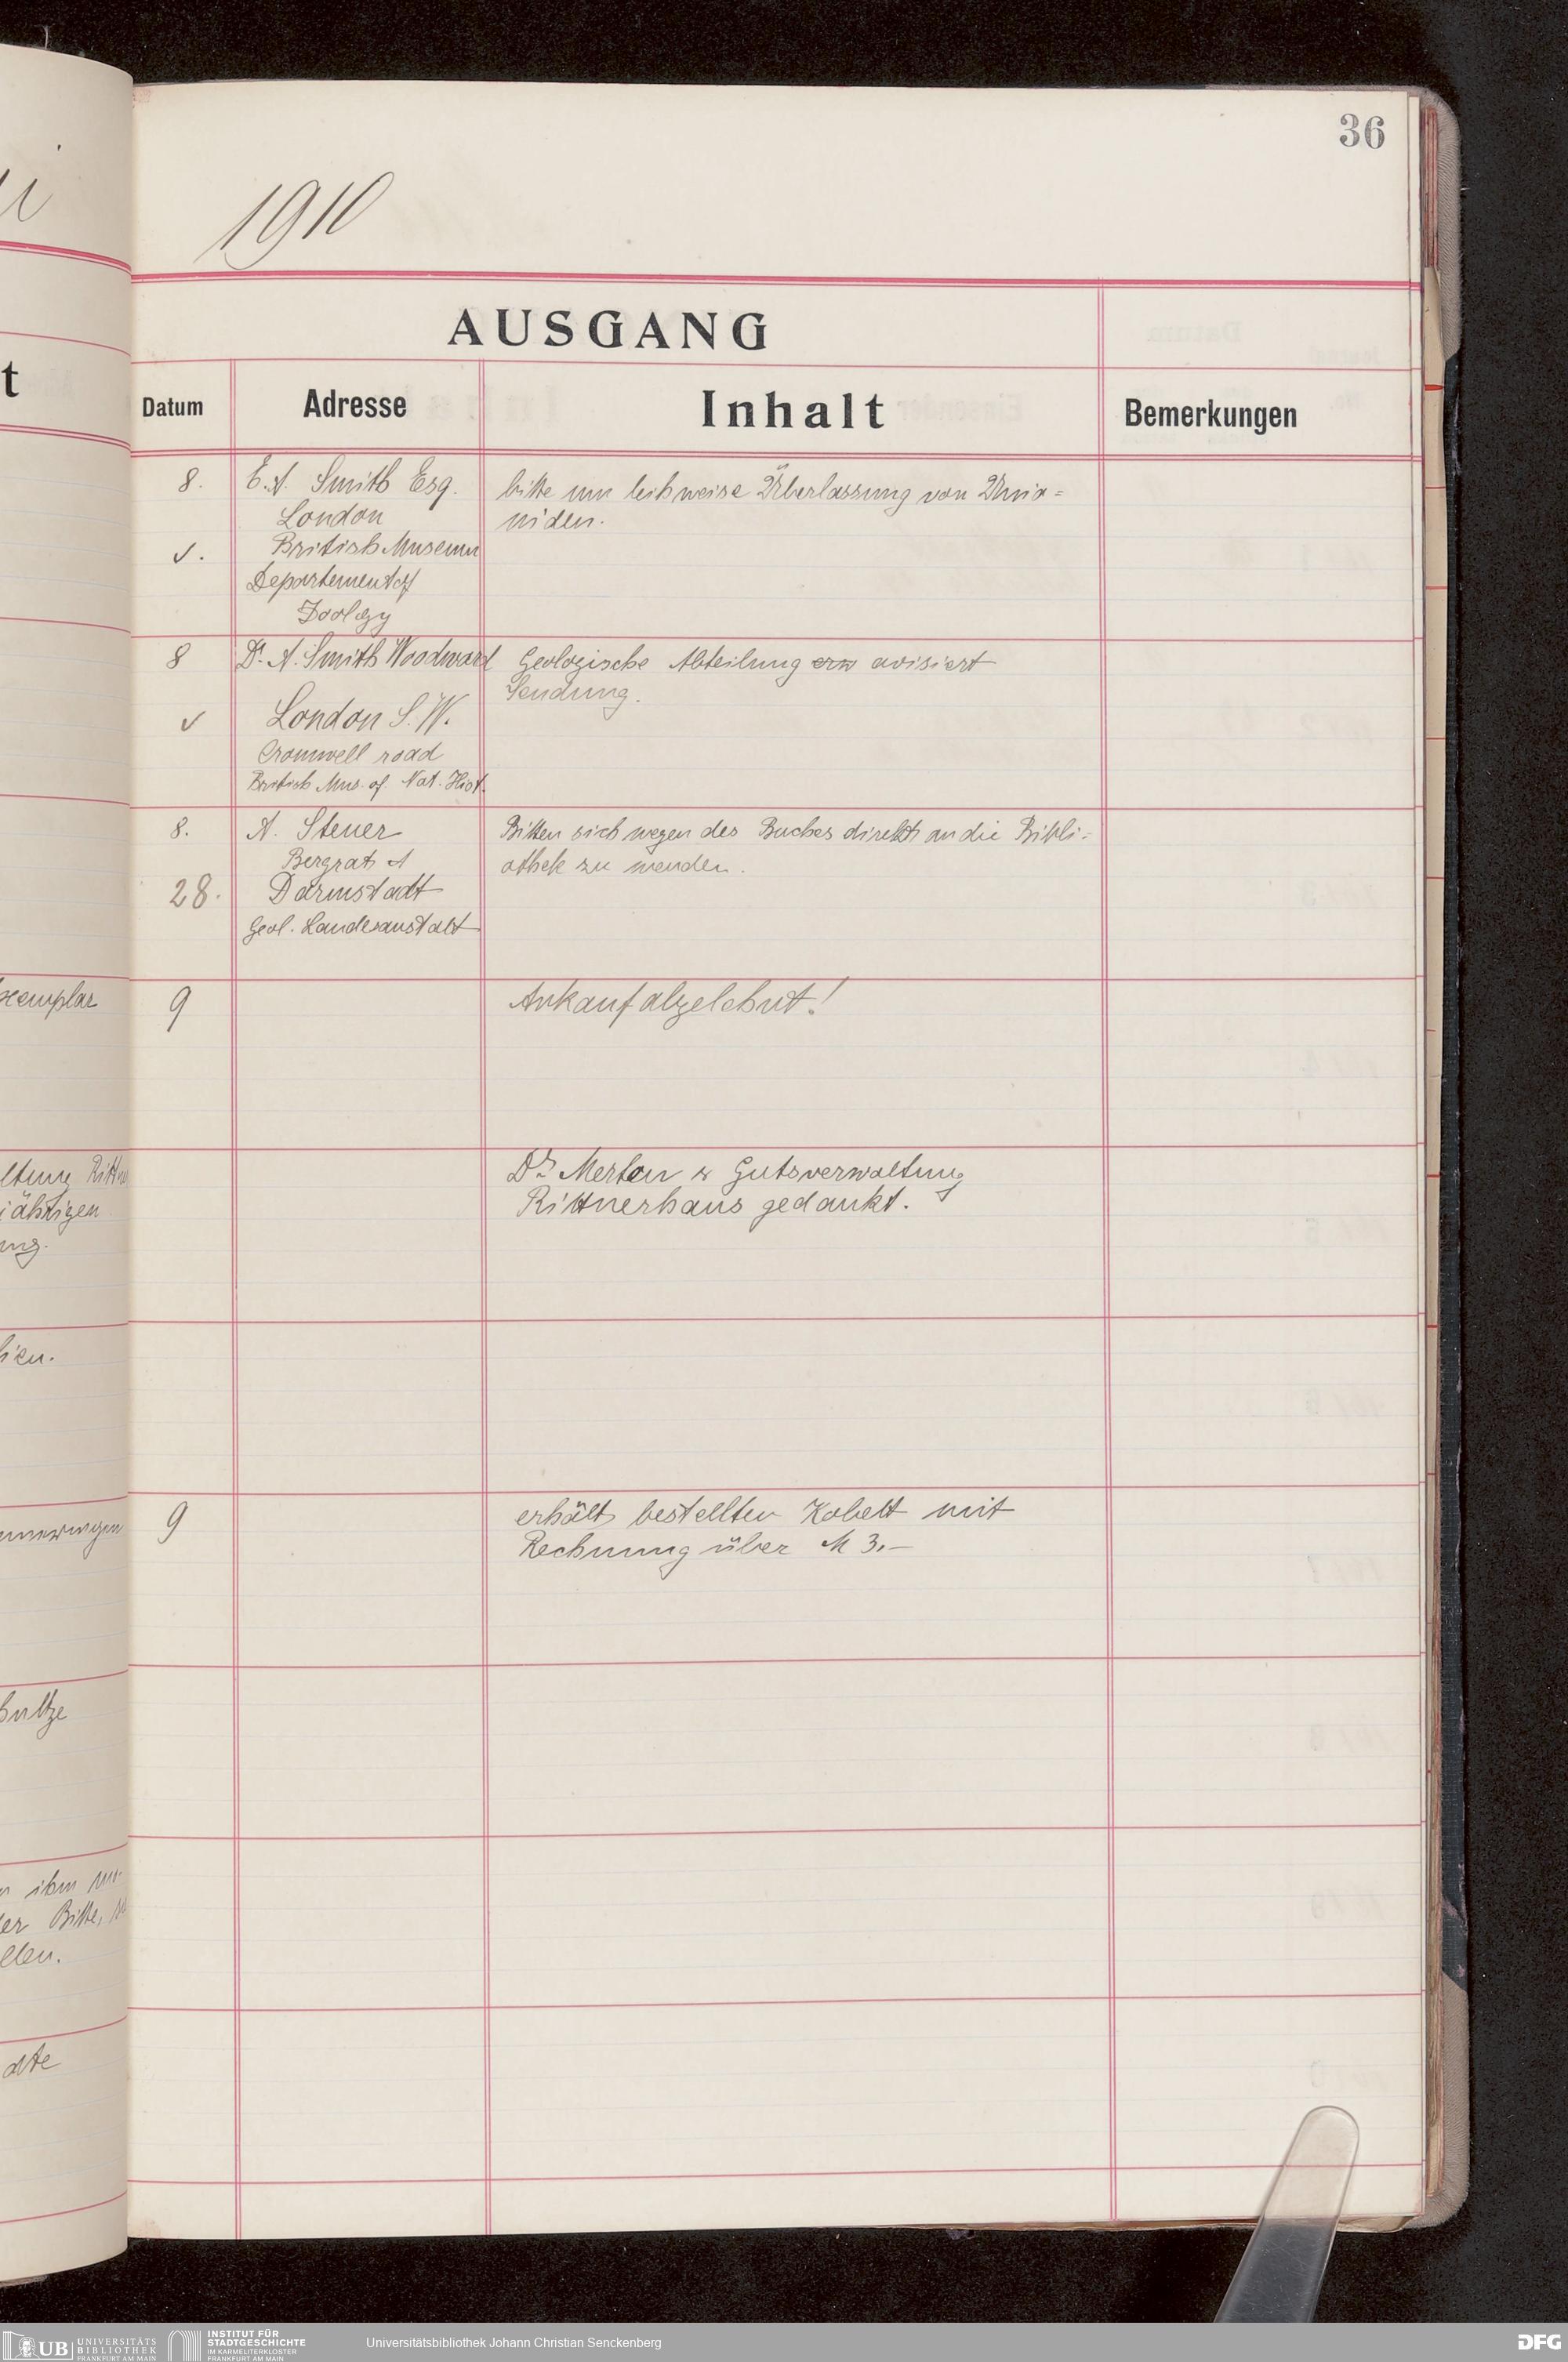 36
1910
AUSGANG
Datum Adresse Inhalt Bemerkungen
8. E. A. Smith Esq. bitte um leihweise Überlassung von Unio=
London niden.
v. British Museum
Departement of
Zoology
8 Dr. A. Smith Woodward Geologische Abteilung avisiert
Sendung.
v London S. W.
Cromwell road
British Mus. of Nat. Hist.
8. A. Steuer Bitten sich wegen des Buches direkt an die Bibli=
Bergrat othek zu wenden.
28. Darmstadt
Geol. Landesanstalt
9 Ankauf abgelehnt!
Dr. Merton & Gutsverwaltung
Rittnerhaus gedankt.
9 erhält bestellten Kobelt mit
Rechnung über M 3.—
t
xemplar
ltung
jährigen
ung.
lien.
hultze
ihm
er Bitte,
llen.
dte
UB UNIVERSITÄTS
BIBLIOTHEK
FRANKFURT AM MAIN
INSTITUT FÜR
STADTGESCHICHTE
IM KARMELITERKLOSTER
FRANKFURT AM MAIN
Universitätsbibliothek Johann Christian Senckenberg
DFG